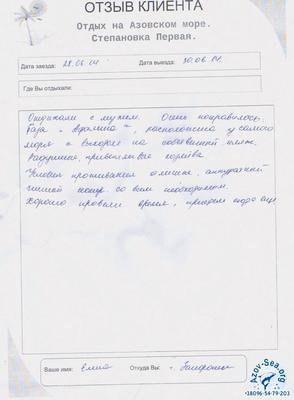 ОТЗЫВ КЛИЕНТА
Отдых на Азовском море.
Степановка Первая.
Дата заезда: 28.06.14 Дата выезда: 30.06.14.
Где Вы отдыхали:
Отдыхали с мужем. Очень понравилось.
База " ", расположена у самого
моря с выходом на собственный пляж.
Радушные, приветливые хозяева.
Условия проживания отличные, аккуратный
чистый номер со всем необходимым.
Хорошо провели время, приедем скоро еще
Ваше имя: Елена Откуда Вы: г. Запорожье
Azov-Sea.org
+38096-54-79-203